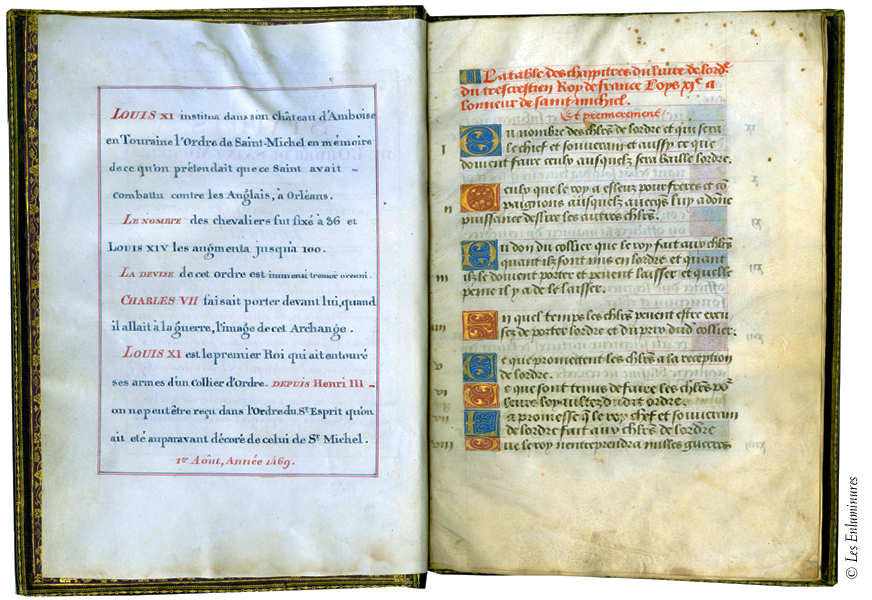 LOUIS XI institua dans son château d'Amboise
en Touraine l'Ordre de Saint-Michel en mémoire
de ce qu'on prétendait que ce Saint avait -
combattu contre les Anglais, à Orléans.
LE NOMBRE des chevaliers fut fixé à 36 et
LOUIS XIV les augmenta jusqu'à 100.
LA DEVISE de cet ordre est immensi tremor oceani.
CHARLES VII faisait porter devant lui, quand
il allait à la guerre, l'image de cet Archange.
LOUIS XI est le premier Roi qui ait entouré
ses armes d'un Collier d'Ordre. DEPUIS Henri III -
on ne peut être reçu dans l'Ordre du St. Esprit qu'on
ait eté auparavant décoré de celui de St. Michel.
1er Août, Année 1469.
La table des chappitres du livre de lordre
du trescrestien Roy de france Loys xie a
lonneur de saint michiel.
Et premierement
i Du nombre des chlrs de lordre et qui sera
le chief et souverain et aussy ce que
doivent faire ceulx ausquelz sera baille lordre.
ii Ceulx que le roy a esleuz pour freres et con
paignons ausquelz avecques luy a donne
puissance deslire les autres chlrs.
iii Du don du collier que le roy fait aux chlrs
quant ilz sont mis en lordre et quant
ilz le doivent porter et pevent laisser et quelle
peine il y a de le laisser.
iiii En quel temps les chlrs pevent estre excu
sez de porter lordre et du pris dud collier.
v Ce que promectent les chlrs a la reception
de lordre.
vi Ce que sont tenus de faire les chlrs por
leurs loyaultez dudit ordre.
vii La promesse que le roy chef et souverain
de lordre fait aux chlrs de lordre
viii Que le roy nentreprendra nulles guerres
© Les Enluminures